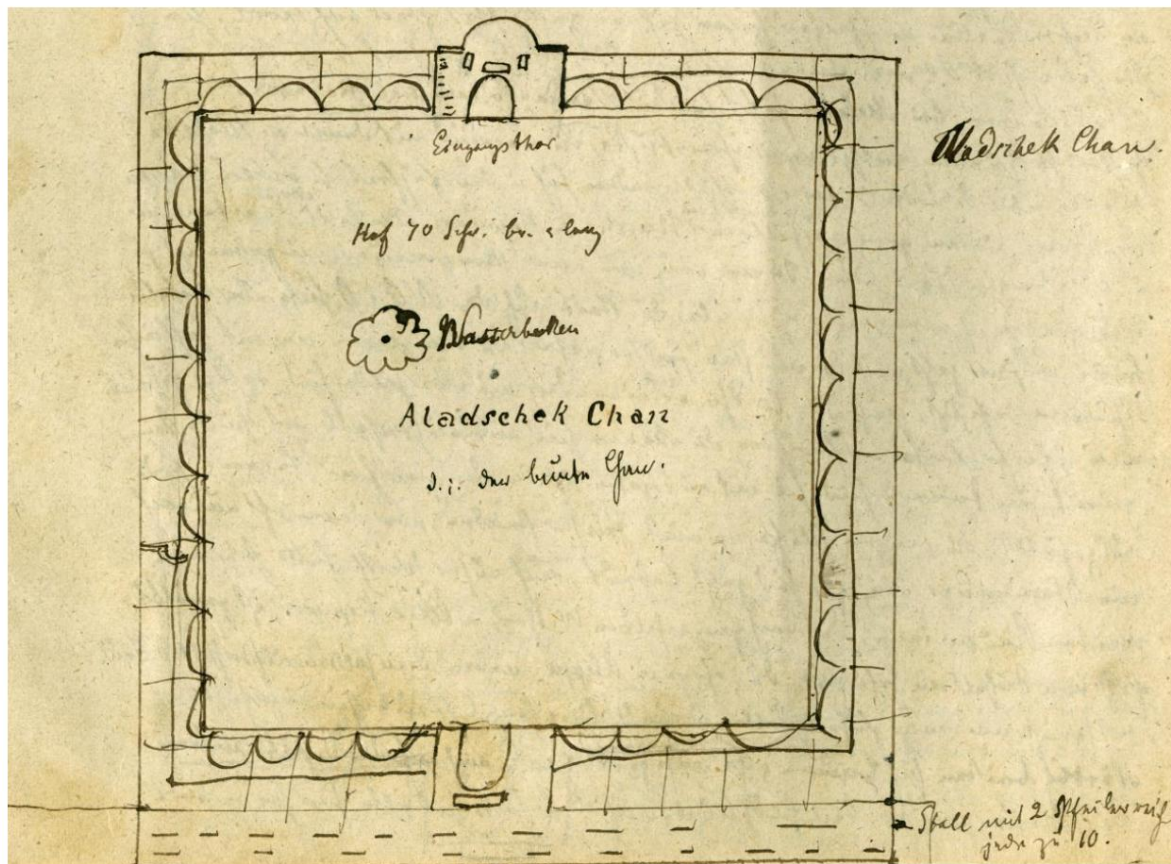 Eingangsthor
Aladschek Chan.
Hof 70 Schr. br. u lang
Wasserbecken
Aladschek Chan
d. i. der bunte Chan.
Stall mit 2 Pfeilerreih
jede zu 10.